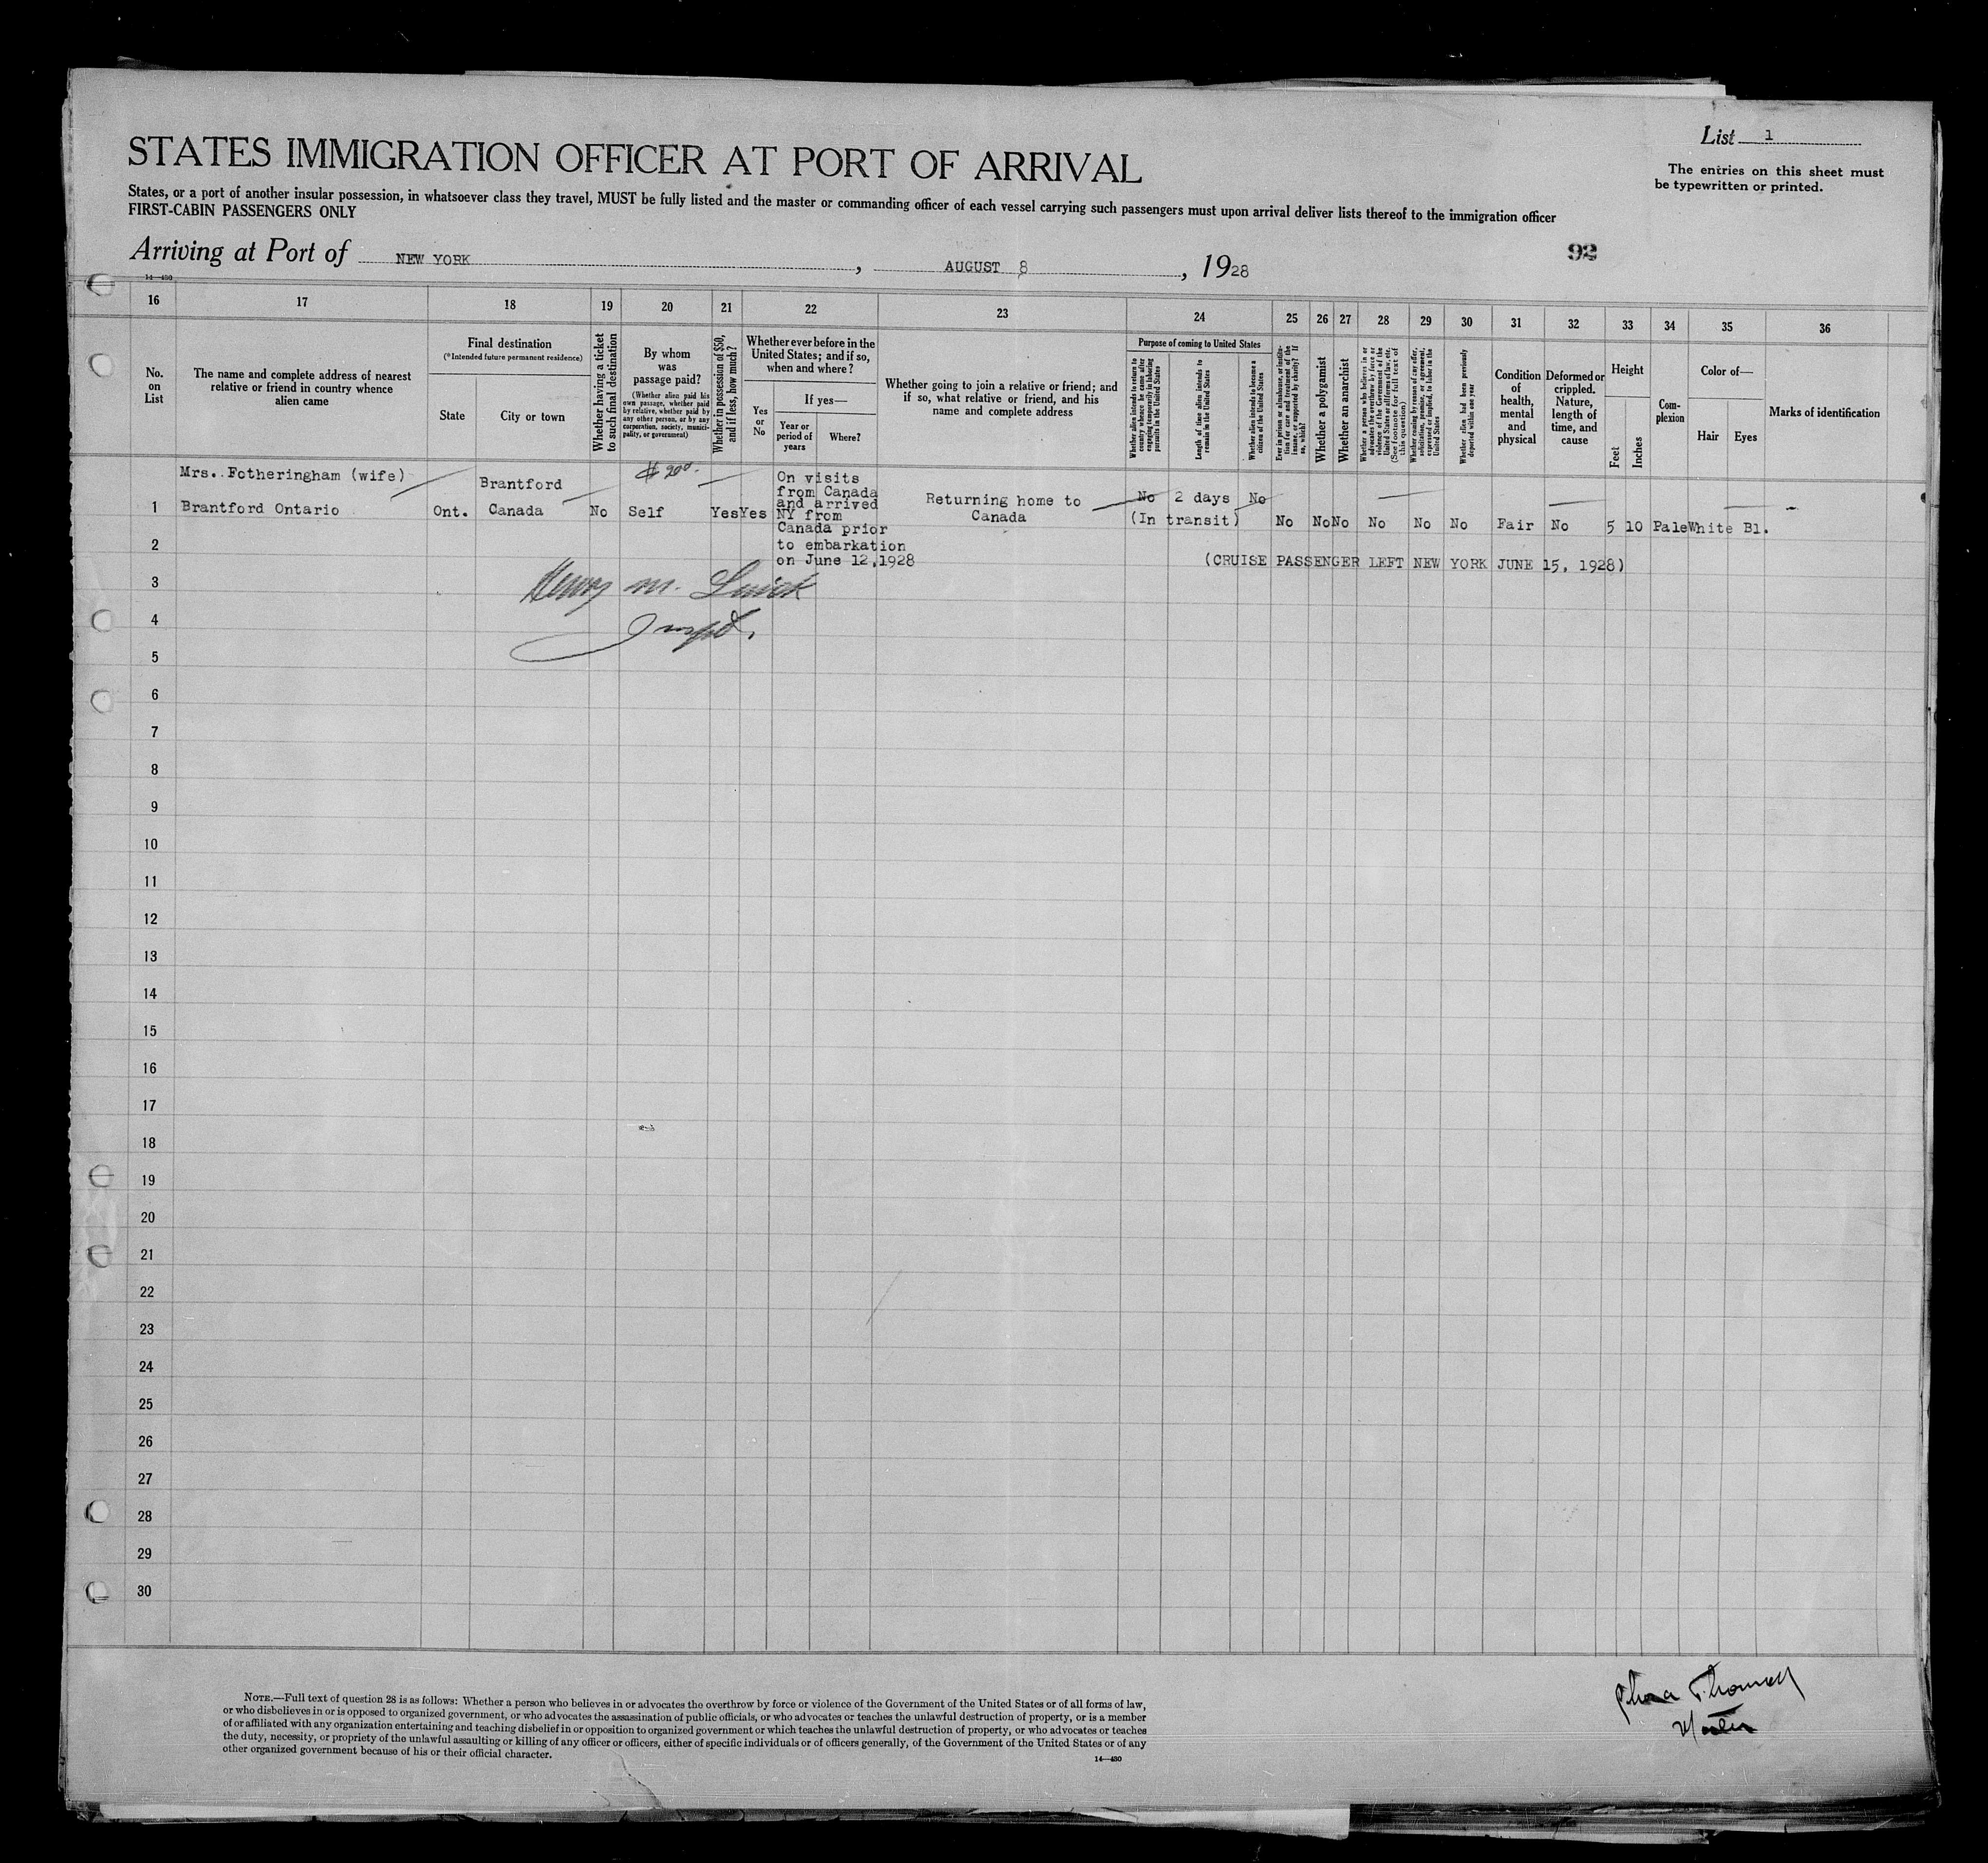 List 1
STATES IMMIGRATION OFFICER AT PORT OF ARRIVAL
The entries on this sheet must
be typewritten or printed.
States, or a port of another insular possession, in whatsoever class they travel, MUST be fully listed and the master or commanding officer of each vessel carrying such passengers must upon arrival deliver lists thereof to the immigration officer
FIRST-CABIN PASSENGERS ONLY
Arriving at Port of NEW YORK, AUGUST 8, 1928
92
14—430
16 17 18 19 20 21 22 23 24 25 26 27 28 29 30 31 32 33 34 35 36
No.
on
List
The name and complete address of nearest
relative or friend in country whence
alien came
Final destination
(*Intended future permanent residence)
State
City or town
Whether having a ticket
to such final destination
By whom
was
passage paid?
(Whether alien paid his
own passage, whether paid
by relative, whether paid by
any other person, or by any
corporation, society, munici-
pality, or government)
Whether in possession of $50,
and if less, how much?
Whether ever before in the
United States; and if so,
when and where?
Yes
or
No
If yes—
Year or
period of
years
Where?
Whether going to join a relative or friend; and
if so, what relative or friend, and his
name and complete address
Purpose of coming to United States
Whether alien intends to return to
country whence he came after
engaging temporarily in laboring
pursuits in the United States
Length of time alien intends to
remain in the United States
Whether alien intends to become a
citizen of the United States
Ever in prison or almshouse, or institu-
tion for care and treatment of the
insane, or supported by charity? If
so, which?
Whether a polygamist
Whether an anarchist
Whether a person who believes in or
advocates the overthrow by force or
violence of the Government of the
United States or all forms of law, etc.
(See footnote for full text of
this question)
Whether coming by reason of any offer,
solicitation, promise, or agreement,
expressed or implied, to labor in the
United States
Whether alien had been previously
deported within one year
Condition
of
health,
mental
and
physical
Deformed or
crippled.
Nature,
length of
time, and
cause
Height
Feet
Inches
Com-
plexion
Color of—
Hair
Eyes
Marks of identification
Mrs. Fotheringham (wife)
1 Brantford Ontario
Ont.
Brantford
Canada
No
$ 200.
Self
Yes Yes
On visits
from Canada
and arrived
NY from
Canada prior
to embarkation
on June 12,1928
Returning home to
Canada
No 2 days No
(In transit) No No No No No No Fair No 5 10 Pale White Bl.
(CRUISE PASSENGER LEFT NEW YORK JUNE 15, 1928)
Henry M.
2
3
4
5
6
7
8
9
10
11
12
13
14
15
16
17
18
19
20
21
22
23
24
25
26
27
28
29
30
NOTE.—Full text of question 28 is as follows: Whether a person who believes in or advocates the overthrow by force or violence of the Government of the United States or of all forms of law,
or who disbelieves in or is opposed to organized government, or who advocates the assassination of public officials, or who advocates or teaches the unlawful destruction of property, or is a member
of or affiliated with any organization entertaining and teaching disbelief in or opposition to organized government or which teaches the unlawful destruction of property, or who advocates or teaches
the duty, necessity, or propriety of the unlawful assaulting or killing of any officer or officers, either of specific individuals or of officers generally, of the Government of the United States or of any
other organized government because of his or their official character.
14—430
Master